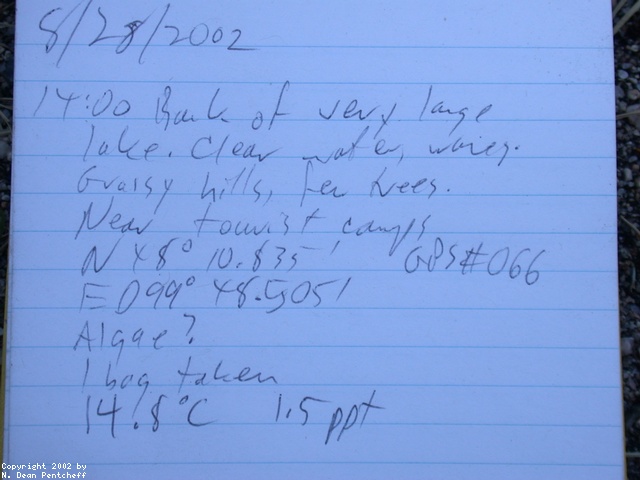 8/28/2002
14:00 Bank of very large
lake. Clear water, waves.
Grassy hills, few trees.
Near tourist camps
N 48° 10.835' GPS#066
E 099° 48.505'
Algae?
1 bag taken
14.8°C 1.5 ppt
Copyright 2002 by
N. Dean Pentcheff